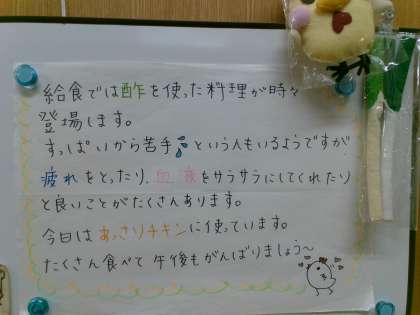 給食では酢を使った料理が時々
登場します。
すっぱいから苦手という人もいるようですが
疲れをとったり、血液をサラサラにしてくれたり
と良いことがたくさんあります。
今日はあっさりチキンに使っています。
たくさん食べて午後もがんばりましょう～